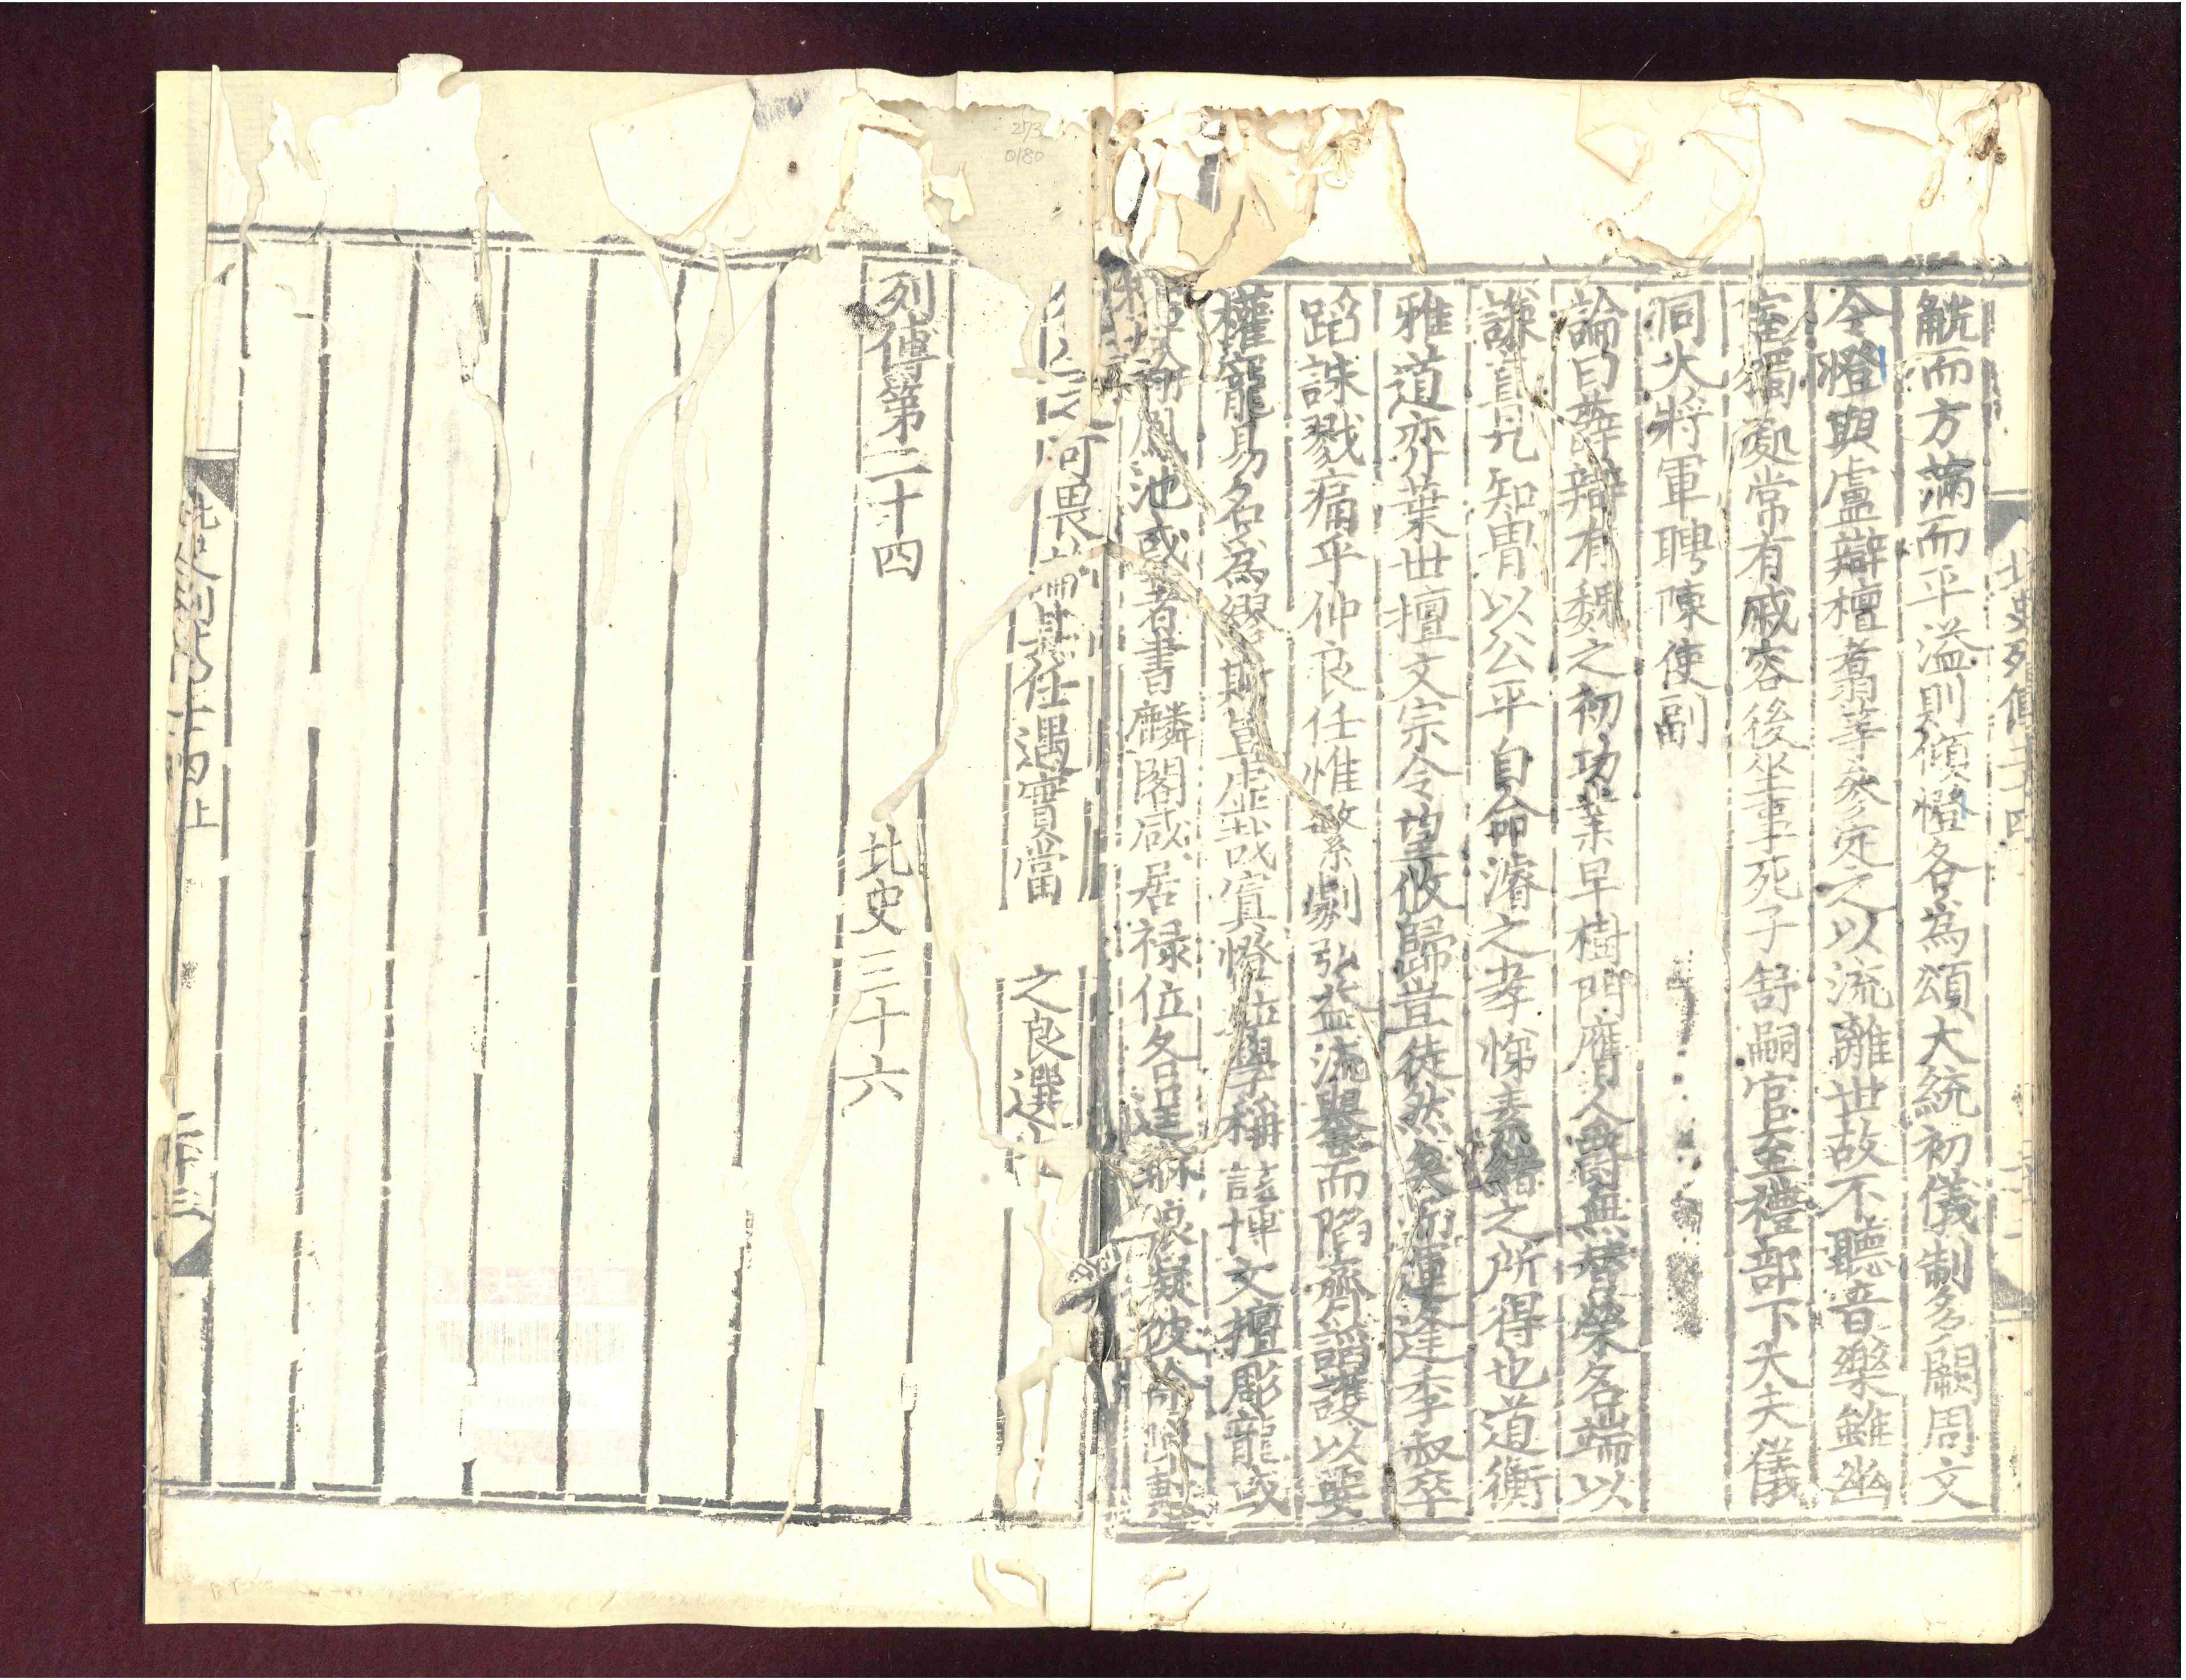 觥而方滿而平溢則傾憕各為頌大統初儀制多闕周文
令憕與盧辯檀翥等參定之以流離世故不聽音樂雖幽
室獨處常有戚容後坐事死子舒嗣官至禮部下大夫儀
同大將軍聘陳使副
論曰薛辯有魏之初功業早樹門膺人爵無替榮名端以
謙直見知冑以公平自命濬之孝悌素緒之所得也道衡
雅道弈葉世擅文宗令望攸歸豈徒然矣而運逢季叔卒
蹈誅戮痛乎仲良任惟繁劇弘益流譽而陷齊諂護以要
權寵易名為繆斯豈虛哉寘憕並學稱該博文擅彫龍或
揮翰鳳池或著書麟閣咸居祿位各逞琳琅擬彼徐陳
可畏論其任遇實當之良選也
列傳第二十四
北史三十六
北史列傳二十四
北史列傳二十四上
二十三
273
0180